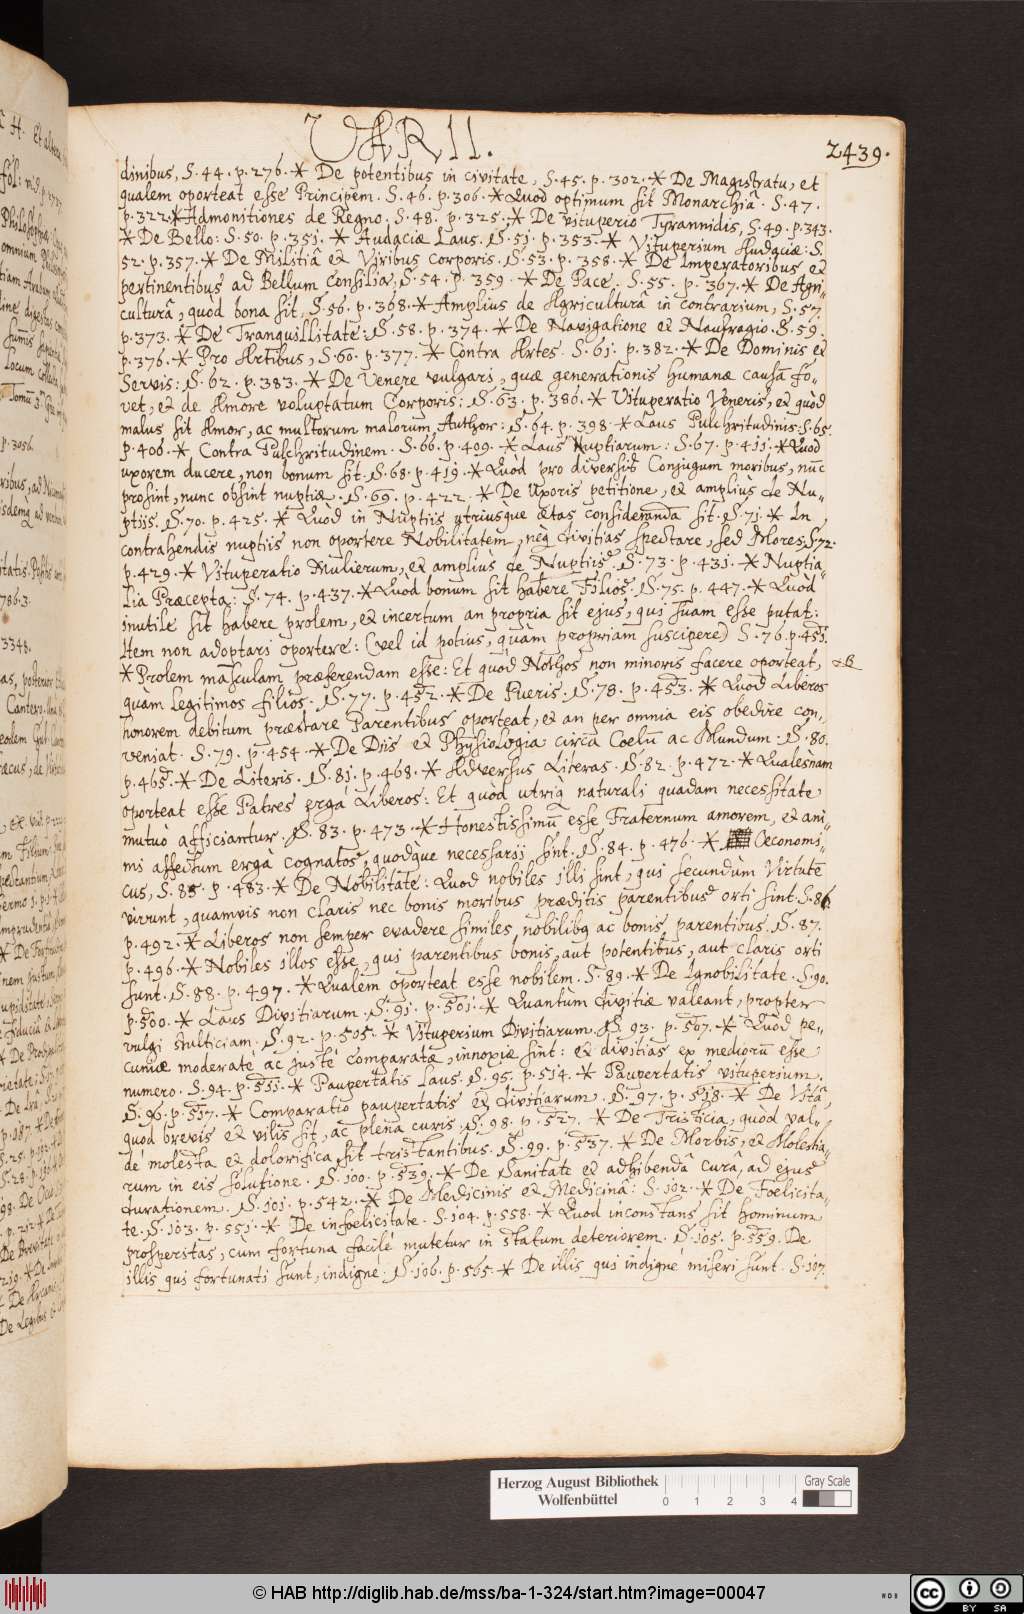 VARII.
2439.
dinibus, S. 44. p. 276. * De potentibus in civitate, S. 45. p. 302. * De Magistratu, et
qualem oporteat esse Principem. S. 46. p. 306. * Quod optimum sit Monarchia. S. 47.
p. 322. * Admonitiones de Regno. S. 48. p. 325. * De vituperio Tyrannidis, S. 49. p. 343.
* De Bello: S. 50. p. 351. * Audaciæ Laus. S. 51. p. 353. * Vituperium Audaciæ: S.
52. p. 357. * De Militiâ et Viribus corporis. S. 53. p. 358. * De Imperatoribus et
pertinentibus ad Bellum Consiliis, S. 54. p. 359. * De Pace. S. 55. p. 367. * De Agri-
culturâ, quòd bona sit, S. 56. p. 368. * Amplius de Agriculturâ in contrarium, S. 57.
p. 373. * De Tranquillitate. S. 58. p. 374. * De Navigatione et Naufragio. S. 59.
p. 376. * Pro Artibus, S. 60. p. 377. * Contra Artes. S. 61. p. 382. * De Dominis et
Servis: S. 62. p. 383. * De Venere vulgari, quæ generationis humanæ causâ fo-
vet, et de Amore voluptatum Corporis: S. 63. p. 386. * Vituperatio Veneris, et quòd
malus sit Amor, ac multorum malorum Author: S. 64. p. 398. * Laus Pulchritudinis. S. 65.
p. 406. * Contra Pulchritudinem. S. 66. p. 409. * Laus Nuptiarum: S. 67. p. 411. * Quod
uxorem ducere, non bonum sit. S. 68. p. 419. * Quòd pro diversis Conjugum moribus, nũc
prosint, nunc obsint nuptiæ. S. 69. p. 422. * De Uxoris petitione, et ampliùs de Nu-
ptiis. S. 70. p. 425. * Quòd in Nuptiis utriusque ætas consideranda sit. S. 71. * In
contrahendis nuptiis non oportere Nobilitatem, neq divitias spectare, sed Mores. S. 72.
p. 429. * Vituperatio Mulierum, et ampliùs de Nuptiis. S. 73. p. 431. * Nuptia-
lia Præcepta: S. 74. p. 437. * Quòd bonum sit habere Filios. S. 75. p. 447. * Quòd
inutile sit habere prolem, et incertum an propria sit ejus, qui suam esse putat:
Item non adoptari oportere: (vel id potius, quàm propriam suscipere) S. 76. p. 451.
* Prolem masculam præferendam esse: Et quòd Nothos non minoris facere oporteat,
quàm legitimos filios. S. 77. p. 452. * De Pueris. S. 78. p. 453. * Quod Liberos
honorem debitum præstare Parentibus oporteat, et an per omnia eis obedire con-
veniat. S. 79. p. 454. * De Diis et Physiologia circa Coelũ ac Mundum. S. 80.
p. 465. * De Literis. S. 81. p. 468. * Adversus Literas. S. 82. p. 472. * Qualesnam
oporteat esse Patres ergà Liberos: Et quòd utriq naturali quadam necessitate
mutuò afficiantur. S. 83. p. 473. * Honestissimũ esse Fraternum amorem, et ani-
mi affectum ergà cognatos, quodque necessarii sint. S. 84. p. 476. * Oeconomi-
cus, S. 85. p. 483. * De Nobilitate: Quod nobiles illi sint, qui secundùm Virtutẽ
vivunt, quamvis non claris nec bonis moribus præditis parentibus orti sint. S. 86.
p. 492. * Liberos non semper evadere similes, nobilibq ac bonis parentibus. S. 87.
p. 496. * Nobiles illos esse, qui parentibus bonis, aut potentibus, aut claris orti
sunt. S. 88. p. 497. * Qualem oporteat esse nobilem. S. 89. * De Ignobilitate. S. 90.
p. 500. * Laus Divitiarum. S. 91. p. 501. * Quantùm divitiæ valeant, propter
vulgi stulticiam. S. 92. p. 505. * Vituperium Divitiarum. S. 93. p. 507. * Quòd pe-
cuniæ moderatè ac justè comparatæ, innoxiæ sint: et divitias ex mediorũ esse
numero. S. 94. p. 511. * Paupertatis Laus. S. 95. p. 514. * Paupertatis vituperium.
S. 96. p. 517. * Comparatio paupertatis et divitiarum. S. 97. p. 518. * De Vitâ,
quod brevis et vilis sit, ac plena curis. S. 98. p. 527. * De Tristicia, quòd val-
dè molesta et dolorifica sit tristantibus. S. 99. p. 537. * De Morbis, et Molestia-
rum in eis solutione. S. 100. p. 539. * De Sanitate et adhibendâ curâ, ad ejus
durationem. S. 101. p. 542. * De Medicinis et Medicinâ: S. 102. * De Foelicita-
te. S. 103. p. 551. * De infoelicitate. S. 104. p. 558. * Quod inconstans sit hominum
prosperitas, cum fortuna facilè mutetur in statum deteriorem. S. 105. p. 559. De
illis qui fortunati sunt, indignè. S. 106. p. 565. * De illis qui indignè miseri sunt. S. 107.
Herzog August Bibliothek
Wolfenbüttel
0 1 2 3 4
Gray Scale
© HAB http://diglib.hab.de/mss/ba-1-324/start.htm?image=00047
cc BY SA